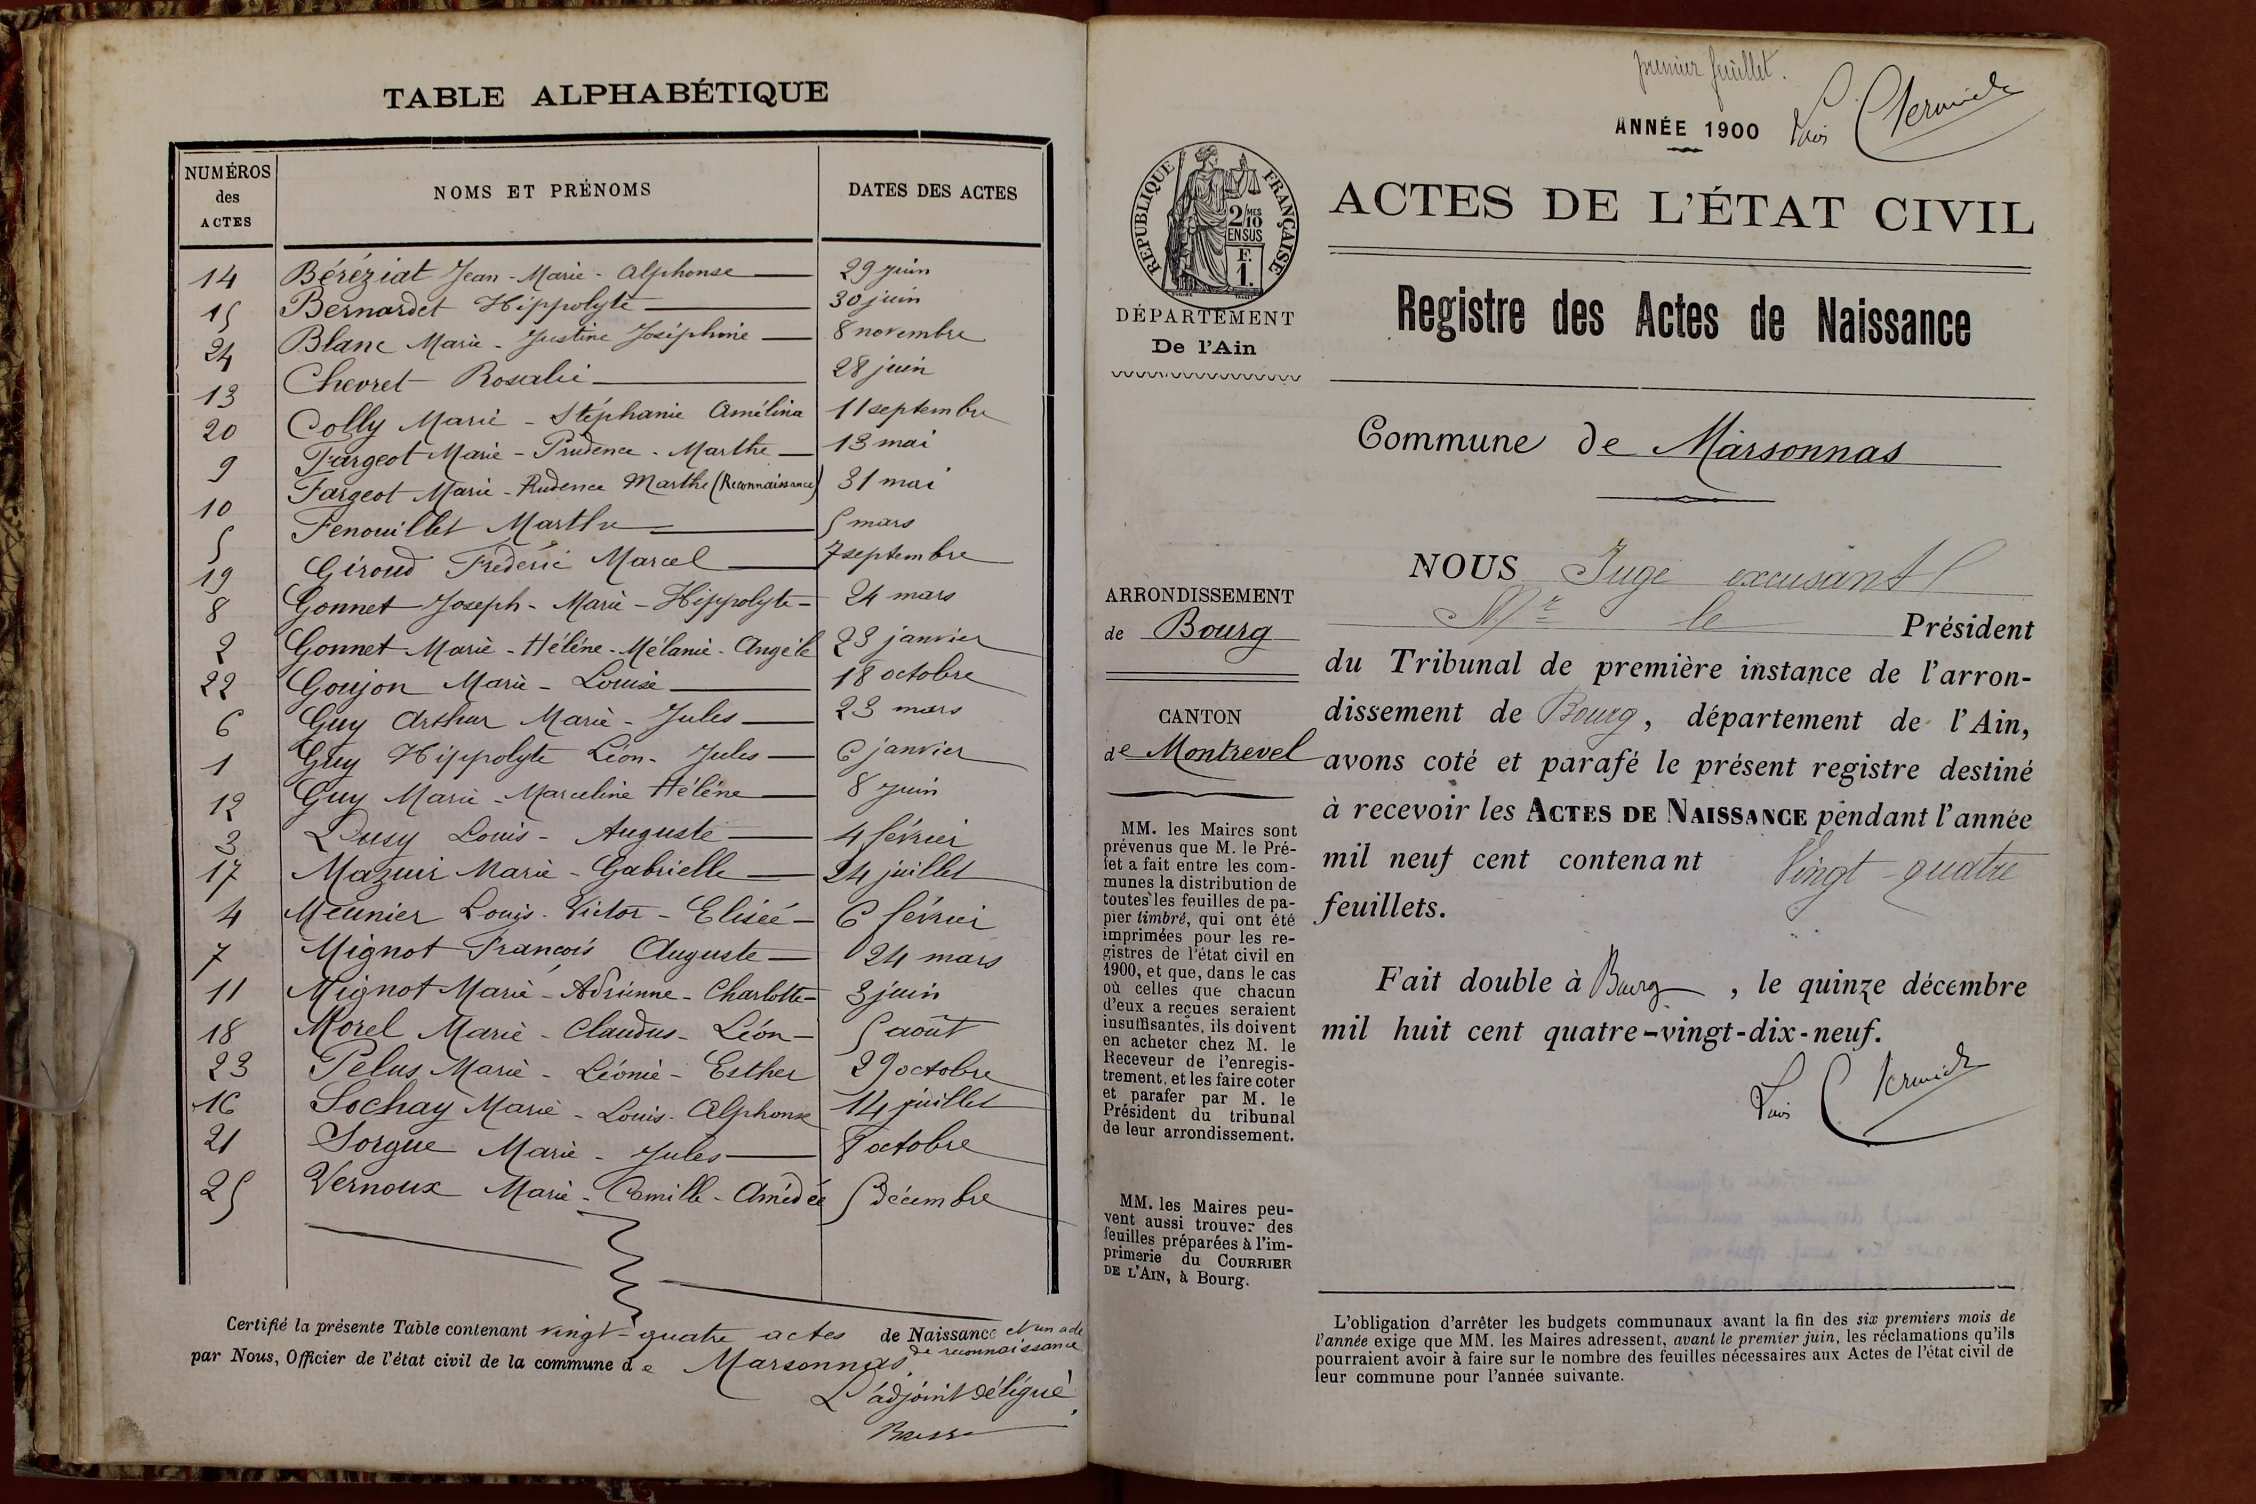 TABLE ALPHABÉTIQUE
NUMÉROS des ACTES | NOMS ET PRÉNOMS | DATES DES ACTES
14 Béréziat Jean-Marie-Alphonse 29 juin
15 Bernardet Hippolyte 30 juin
24 Blanc Marie-Justine Joséphine 8 novembre
13 Chevret Rosalie 28 juin
20 Colly Marie-Stéphanie Amélina 11 septembre
9 Fargeot Marie-Prudence-Marthe 13 mai
10 Fargeot Marie-Prudence Marthe (Reconnaissance) 31 mai
5 Fenouillet Marthe 5 mars
19 Giroud Frédéric Marcel 7 septembre
8 Gonnet Joseph-Marie-Hippolyte 24 mars
2 Gonnet Marie-Hélène-Mélanie-Angèle 23 janvier
22 Goujon Marie-Louise 18 octobre
6 Guy Arthur Marie-Jules 23 mars
1 Guy Hippolyte Léon-Jules 6 janvier
12 Guy Marie-Marceline Hélène 8 juin
3 Louis-Auguste 4 février
17 Mazuir Marie-Gabrielle 24 juillet
4 Meunier Louis-Victor-Elisée 6 février
7 Mignot François Auguste 24 mars
11 Mignot Marie-Adrienne-Charlotte 3 juin
18 Morel Marie-Claudus-Léon 5 août
23 Pelus Marie-Léonie-Esther 29 octobre
16 Sochay Marie-Louis-Alphonse 14 juillet
21 Sorgue Marie-Jules 8 octobre
25 Vernoux Marie-Camille-Amédée 5 décembre
Certifié la présente Table contenant vingt-quatre actes de Naissance et un acte
de reconnaissance
par Nous, Officier de l'état civil de la commune de Marsonnas
L'adjoint délégué,
premier feuillet.
ANNÉE 1900
RÉPUBLIQUE FRANÇAISE
2/10 MES
EN SUS
F.
1.
DÉPARTEMENT
De l'Ain
ACTES DE L'ÉTAT CIVIL
Registre des Actes de Naissance
Commune de Marsonnas
ARRONDISSEMENT
de Bourg
CANTON
de Montrevel
MM. les Maires sont
prévenus que M. le Pré-
fet a fait entre les com-
munes la distribution de
toutes les feuilles de pa-
pier timbré, qui ont été
imprimées pour les re-
gistres de l'état civil en
1900, et que, dans le cas
où celles que chacun
d'eux a reçues seraient
insuffisantes, ils doivent
en acheter chez M. le
Receveur de l'enregis-
trement, et les faire coter
et parafer par M. le
Président du tribunal
de leur arrondissement.
MM. les Maires peu-
vent aussi trouver des
feuilles préparées à l'im-
primerie du COURRIER
DE L'AIN, à Bourg.
NOUS Juge excusant
Mr le Président
du Tribunal de première instance de l'arron-
dissement de Bourg, département de l'Ain,
avons coté et parafé le présent registre destiné
à recevoir les ACTES DE NAISSANCE pendant l'année
mil neuf cent contenant Vingt-quatre
feuillets.
Fait double à Bourg, le quinze décembre
mil huit cent quatre-vingt-dix-neuf.
L'obligation d'arrêter les budgets communaux avant la fin des six premiers mois de
l'année exige que MM. les Maires adressent, avant le premier juin, les réclamations qu'ils
pourraient avoir à faire sur le nombre des feuilles nécessaires aux Actes de l'état civil de
leur commune pour l'année suivante.